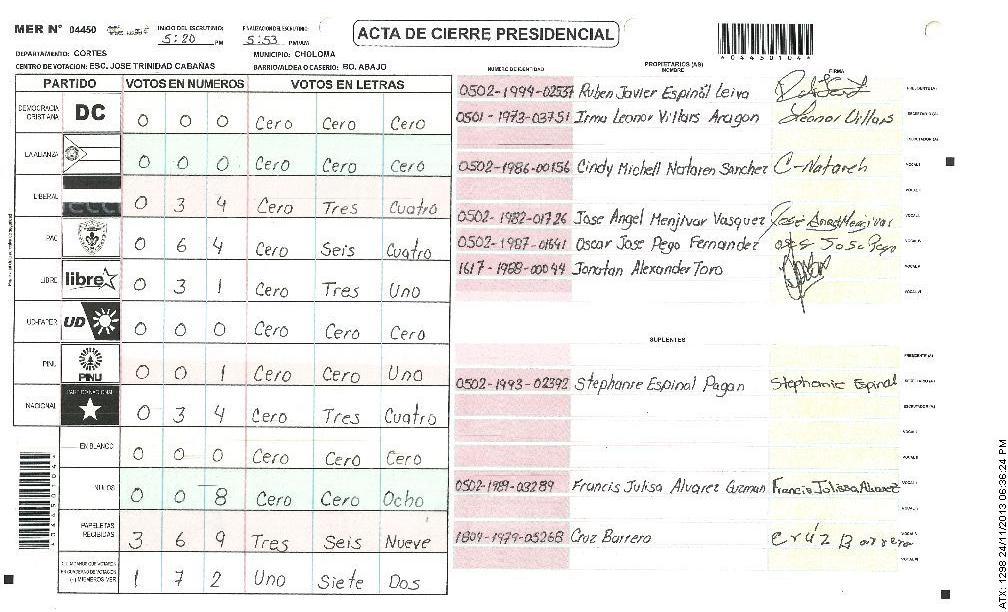 MER N° 04450 INICIO DEL ESCRUTINIO: 5:20 PM FINALIZACION DEL ESCRUTINIO: 5:53 PM/AM
ACTA DE CIERRE PRESIDENCIAL
*04450104*
DEPARTAMENTO: CORTES MUNICIPIO: CHOLOMA
CENTRO DE VOTACION: ESC. JOSE TRINIDAD CABAÑAS BARRIO/ALDEA O CASERIO: BO. ABAJO
PARTIDO VOTOS EN NUMEROS VOTOS EN LETRAS
DEMOCRACIA CRISTIANA DC 0 0 0 Cero Cero Cero
LA ALIANZA 0 0 0 Cero Cero Cero
LIBERAL 0 3 4 Cero Tres Cuatro
PAC 0 6 4 Cero Seis Cuatro
LIBRE libre 0 3 1 Cero Tres Uno
UD-FAPER UD 0 0 0 Cero Cero Cero
PINU PINU 0 0 1 Cero Cero Uno
NACIONAL PARTIDO NACIONAL 0 3 4 Cero Tres Cuatro
EN BLANCO 0 0 0 Cero Cero Cero
NULOS 0 0 8 Cero Cero Ocho
PAPELETAS RECIBIDAS 3 6 9 Tres Seis Nueve
1 7 2 Uno Siete Dos
*04450104*
NUMERO DE IDENTIDAD PROPIETARIOS (AS) NOMBRE FIRMA
0502-1994-02537 Ruben Javier Espinal Leiva PRESIDENTE (A)
0501-1973-03751 Irma Leonor Villars Aragon Leonor Villars SECRETARIO (A)
ESCRUTADOR (A)
0502-1986-00156 Cindy Michell Nataren Sanchez C-Nataren VOCAL I
VOCAL II
0502-1982-01726 Jose Angel Menjivar Vasquez José Angel Menjivar VOCAL III
0502-1987-01641 Oscar Jose Pego Fernandez VOCAL IV
1617-1988-00044 Jonatan Alexander Toro VOCAL V
VOCAL VI
SUPLENTES
PRESIDENTE (A)
0502-1993-02392 Stephanie Espinal Pagan Stephanie Espinal SECRETARIO (A)
ESCRUTADOR (A)
VOCAL I
VOCAL II
0502-1989-03289 Francis Julisa Alvarez Guzman Francis Julissa Alvarez VOCAL III
VOCAL IV
1804-1979-05268 Cruz Barrero Crúz Barrera VOCAL V
VOCAL VI
ATX: 1298 24/11/2013 06:36:24 PM